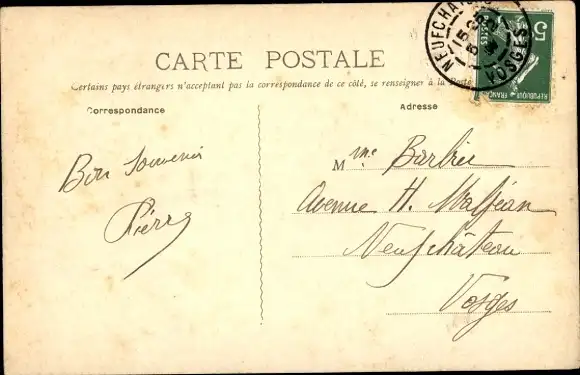 CARTE POSTALE
Certains pays étrangers n'acceptent pas la correspondance de ce côté, se renseigner à la Poste
Correspondance
Bon Souvenir
Pierre
Adresse
Mme Barbier
Avenue H. Maljéan
Neufchâteau
Vosges
VOSGES
5
REPUBLIQUE FRANÇAISE